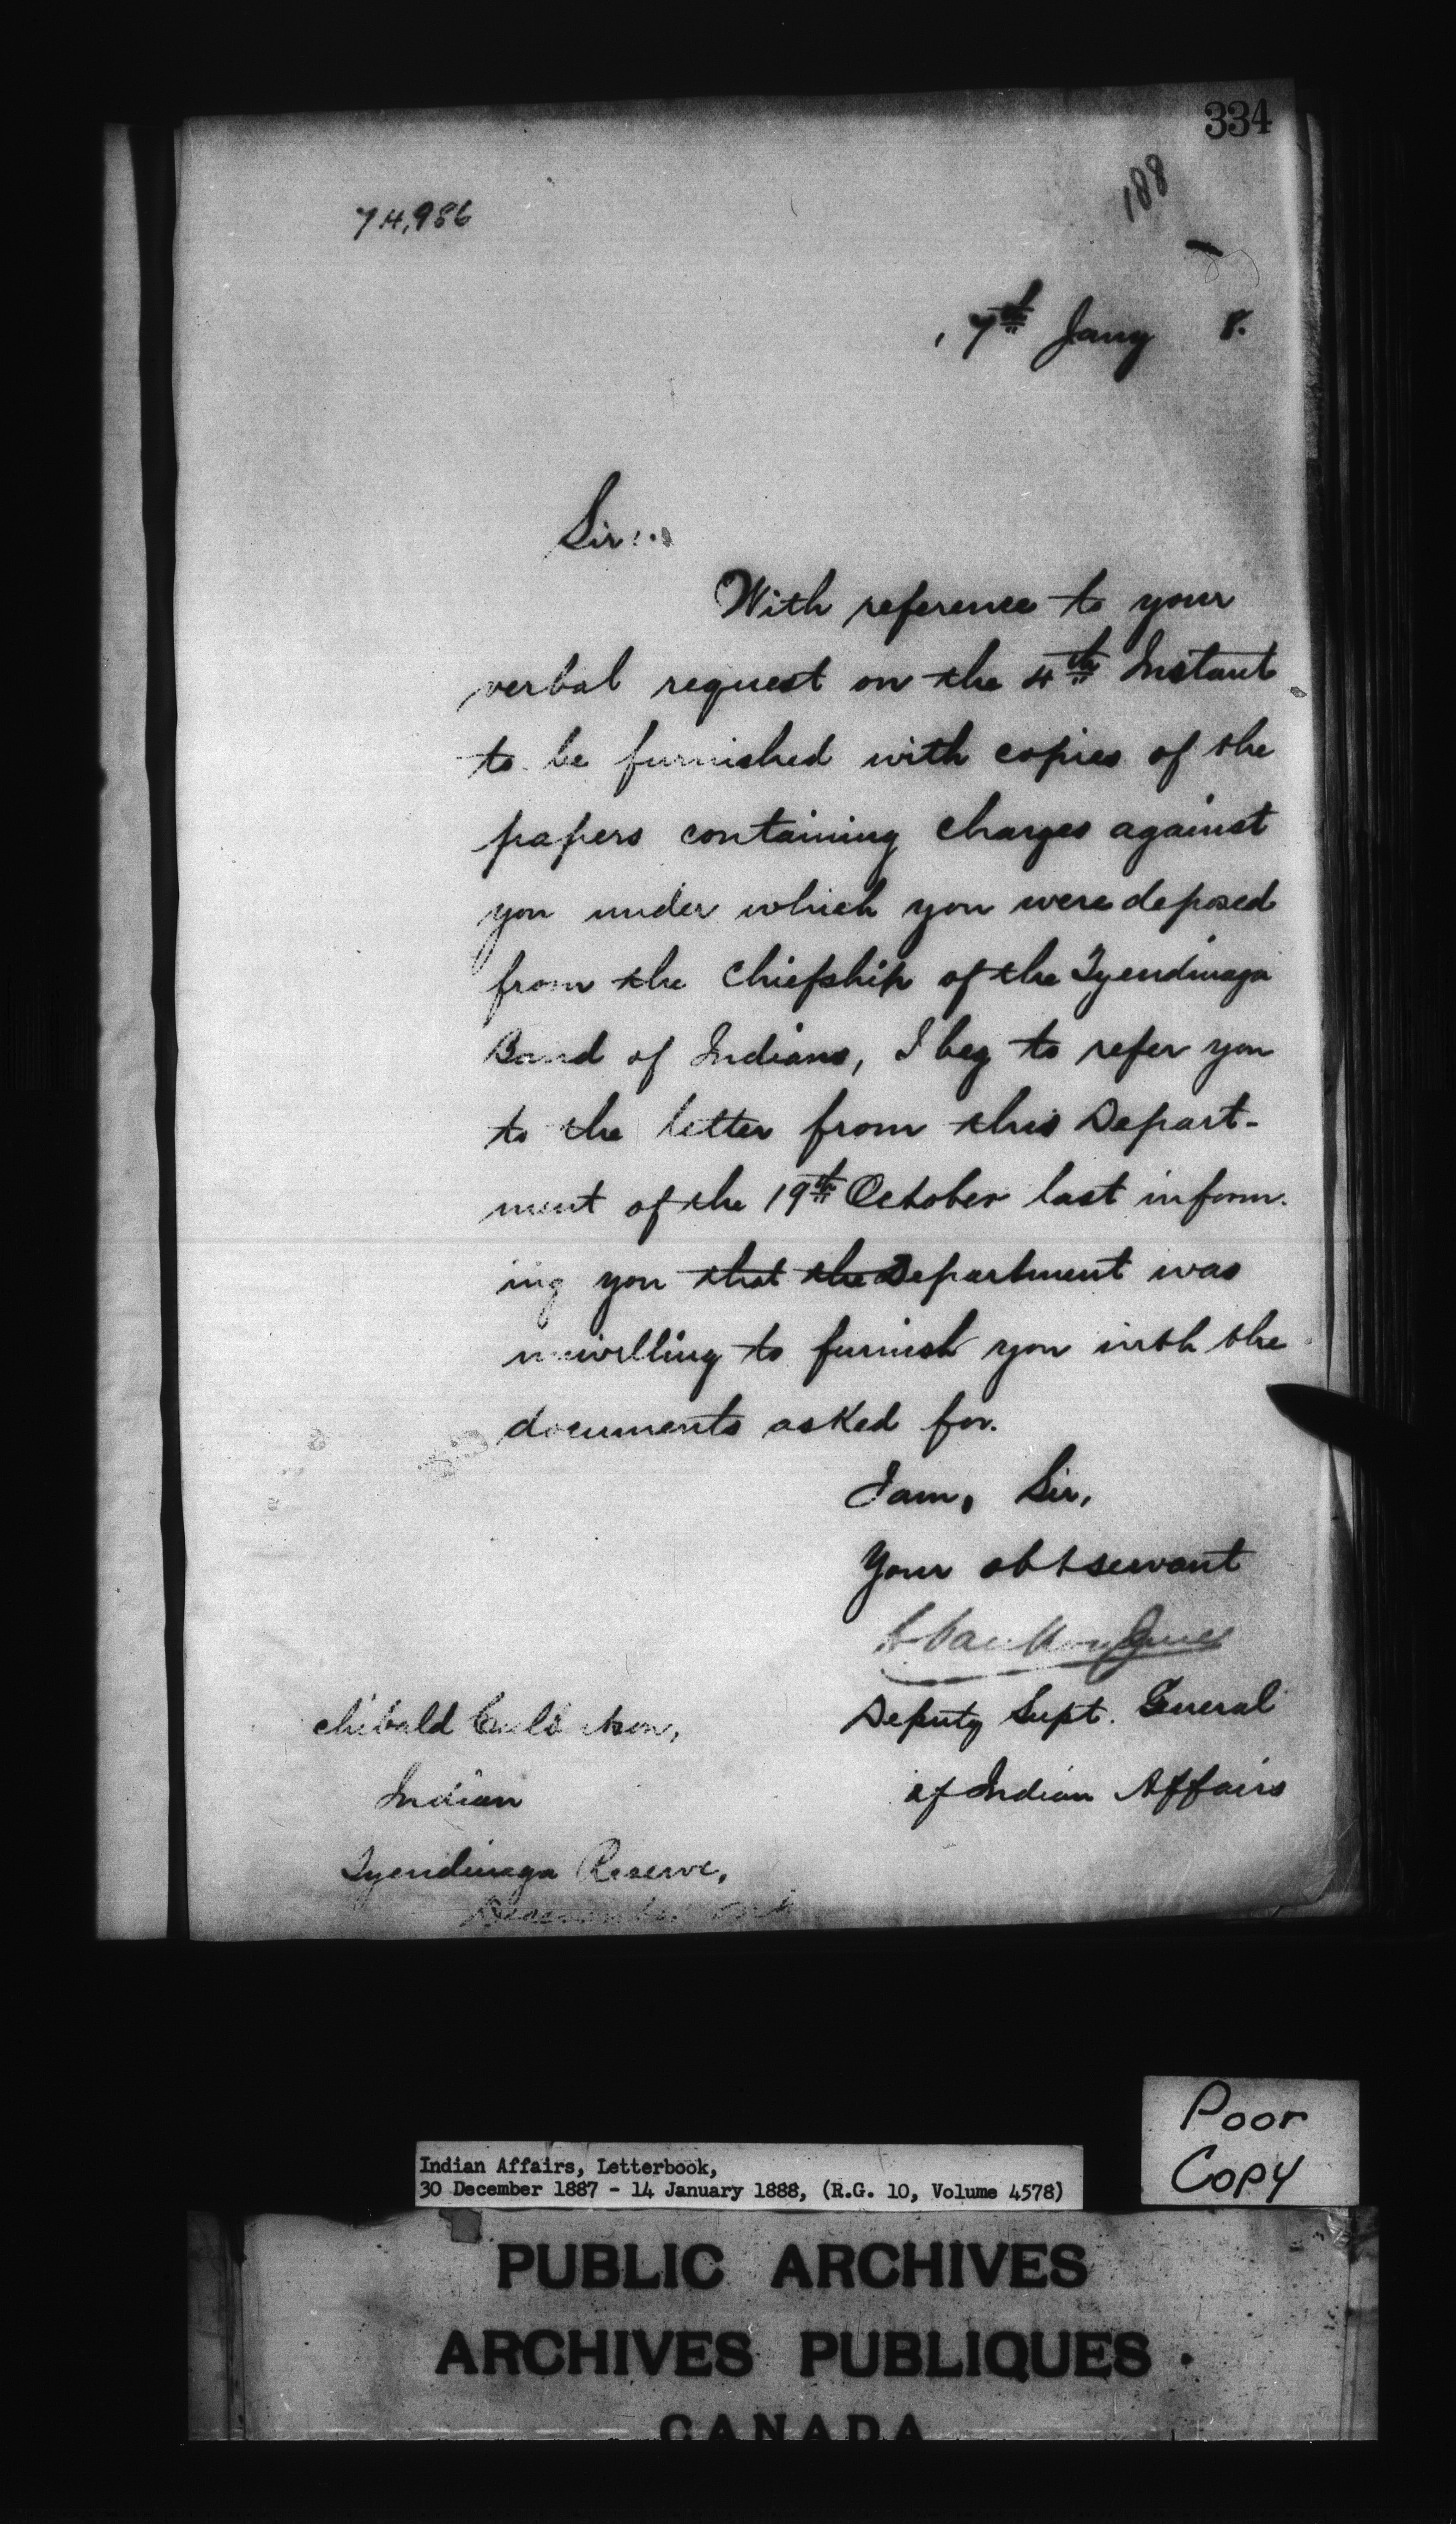 334
188
74,986
7th Jany 8.
Sir:
With reference to your
verbal request on the 4th Instant
to be furnished with copies of the
papers containing charges against
you under which you were deposed
from the Chiefship of the Tyendinaga
Band of Indians, I beg to refer you
to the letter from this Depart-
ment of the 19th October last inform-
ing you that the Department was
unwilling to furnish you with the
documents asked for.
I am, Sir,
Your obt servant
Deputy Supt. General
of Indian Affairs
chibald
Indian
Tyendinaga Reserve,
Poor
Copy
Indian Affairs, Letterbook,
30 December 1887 - 14 January 1888, (R.G. 10, Volume 4578)
PUBLIC ARCHIVES
ARCHIVES PUBLIQUES
CANADA